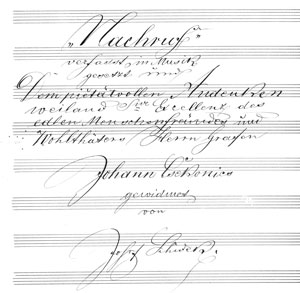 „Nachruf"
verfasst, in Musik
gesetzt und
Dem pietätvollen Andenken
weiland Sr Excellenz des
edlen Menschenfreundes und
Wohlthäters Herrn Grafen
Johann
gewidmet
von
Josef